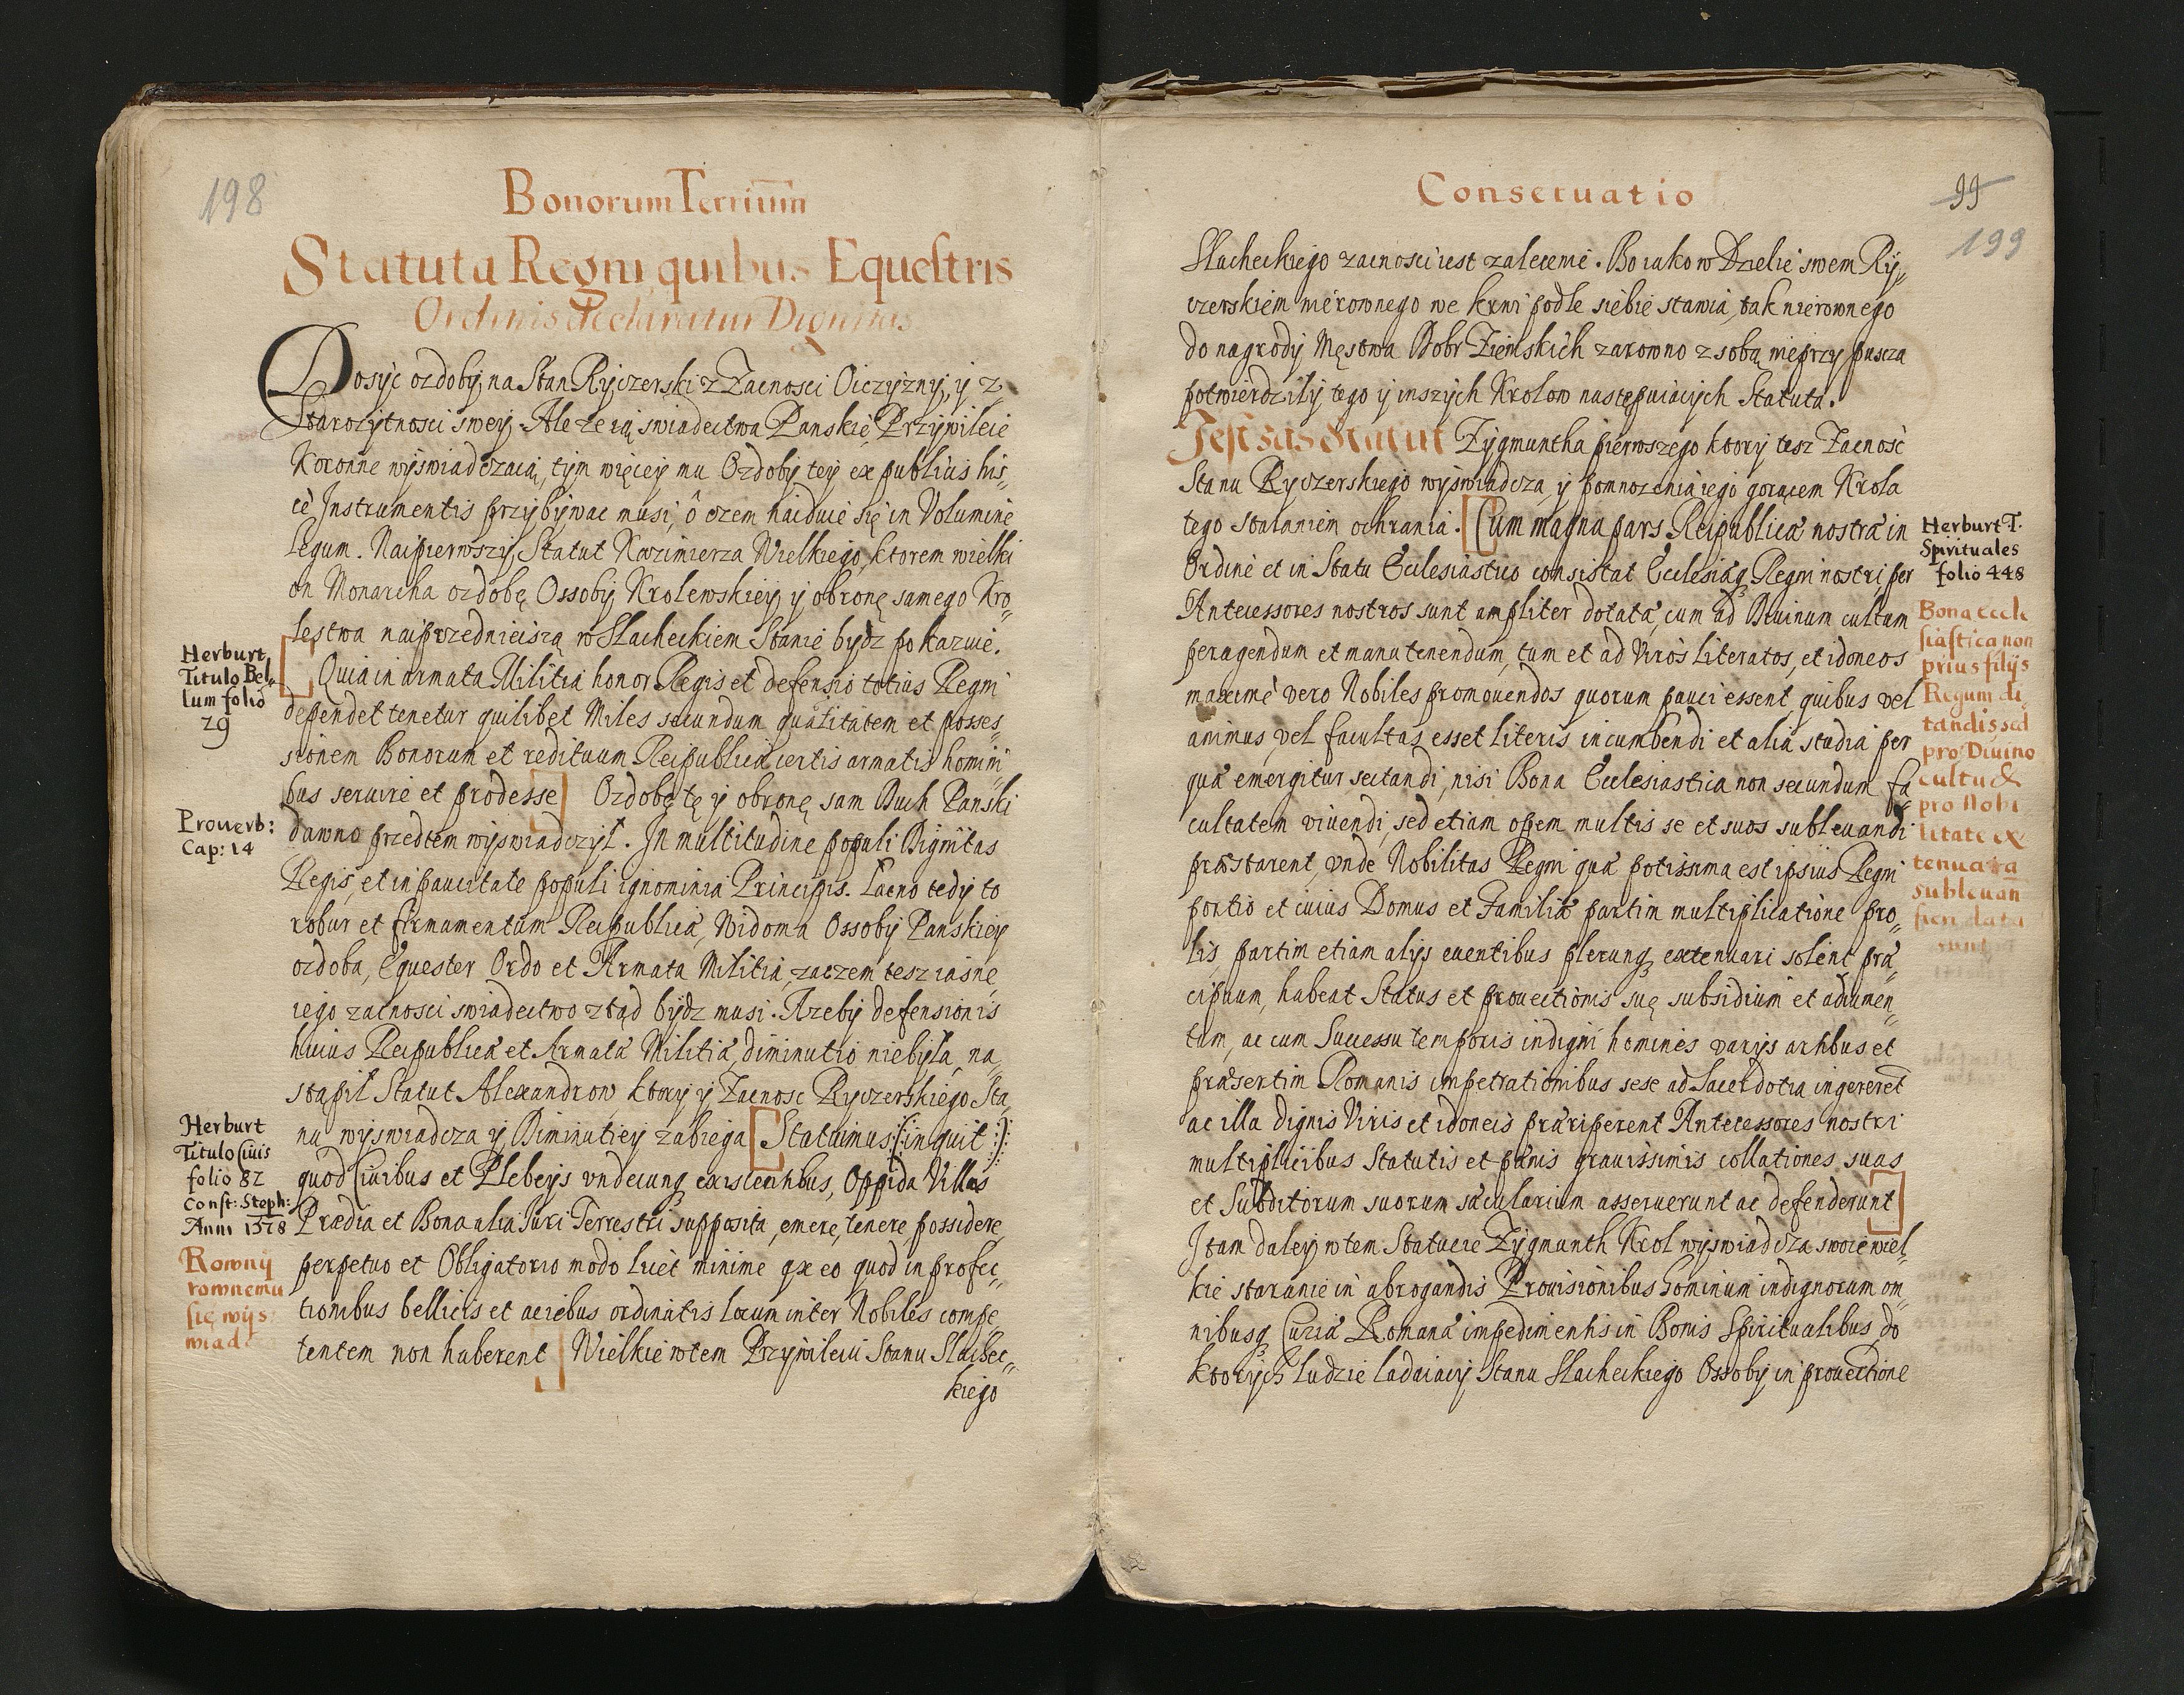 198
Bonorum Terrium̅
Statuta Regni quibus Equestris
Ordinis declaratur Dignitas
Dosyc ozdoby na Stan Ryczerski z Zacnosci Oiczyzny, y z
Starozytnosci swey. Ale ze ią swiadectwa Panskie, Przywileie
Koronne wyswiadczaią, tym więcey mu Ozdoby tey ex publicis his,,
cè Instrumentis przybywac musi, ô czem naiduie się in Volumine
Legum. Naipierwszy Statut Kazimierza Wielkiego, ktorem wielki
on Monarcha ozdobę Ossoby Krolewskiey y obronę samego Kro,,
lestwa naiprzednieiszą w Slacheckiem Stanie bydz pokazuie.
Quia in armata Militia honor Regis et defensio totius Regni
dependet tenetur quilibet Miles secundum qualitatem et posses,,
sionem Bonorum et redituum Reipublicæ certis armatis homini
bus seruire et prodesse Ozdobę tę y obronę sam Duch Panski
dawno przedtem wyswiadczył. In multitudine populi Dignitas
Regis, et in paucitate populi ignominia Principis. Lacno tedy to
robur et firmamentum Reipublicæ, Widoma Ossoby Panskiey
ozdoba, Equester Ordo et Armata Militia, zaczem tesz iasne
iego zacnosci swiadectwo ztąd bydz musi. Azeby defensionis
huius Reipublicæ et Armatæ Militiæ, diminutio niebyła, na,,
stąpił Statut Alexandrow, ktory y Zacnosc Ryczerskiego Sta,
nu wyswiadcza y Diminutiey zabiega Statuimus (: inquit :)
quod Ciuibus et Plebeys vndecunq existentibus, Oppida Villas
Prædia et Bona alia Juri Terrestri supposita, emere, tenere possidere
perpetuo et Obligatorio modo licet minime qx eo quod in profec,,
tionibus bellicis et aciebus ordinatis locum inter Nobiles compe,
tentem non haberent Wielkie wtem Przywileiu Stanu Slachec,,
kiego
Herburt
Titulo Bel,,
lum folio
29
Prouerb:
Cap: 14
Herburt
Titulo Ciuis
folio 82
Const: Steph:
Anni 1578
Rowny
rownemu
się wys
wiad
Conseruatio
99
199
Slacheckiego zacnosci iest zalecenie. Bo iako w Dzielie swem Ry,,
czerskiem nierownego we krwi podle siebie stawia, tak nierownego
do nagrody Męstwa Dobr Ziemskich zarowno z sobą nieprzypuscza
potwierdzily tego y inszych Krolow następuiących Statuta.
Jest zas Statut Zygmuntha pierwszego ktory tesz Zacnosc
Stanu Ryczerskiego wyswiadcza, y pomnozenia iego gorącem Krola
tego staraniem ochrania. Cum magna pars Reipublicæ nostræ in
Ordine et in Statu Ecclesiastico consistat Ecclesiæq Regni nostri, per
Antecessores nostros sunt ampliter dotatæ, cum ad Diuinum cultum
peragendum et manutenendum, tum et ad Viros Literatos, et idoneos
maximè vero Nobiles promouendos quorum pauci essent quibus vel
animus, vel facultas esset literis incumbendi et alia studia per
quæ emergitur sectandi, nisi Bona Ecclesiastica non secundum fa,,
cultatem viuendi, sed etiam opem multis se et suos subleuandi
præstarent, vnde Nobilitas Regni quæ potissima est ipsius Regni
portio et cuius Domus et Familiæ partim multiplicatione pro,,
lis, partim etiam alys euentibus plerunq extenuari solent præ,,
cipuum, habeat Status et prouectionis suę subsidium et adiumen,,
tum, ac cum Successu temporis indigni homines varys artibus et
præsertim Romanis impetrationibus sese ad Sacerdotia ingereret
ac illa dignis Viris et idoneis præriperent Antecessores nostri
multiplicibus Statutis et pænis grauissimis collationes suas
et Subditorum suorum sæcularium asseruerunt ac defenderunt
I tam daley wtem Statucie Zygmunth Krol wyswiadcza swoie wiel,,
kie staranie in abrogandis Prouisionibus hominum indignorum om,,
nibusq Curiæ Romanæ impedimentis in Bonis Spiritualibus, do
ktorych ludzie ladaiacy, Stanu Slacheckiego Ossoby in prouectione
Herburt T.
Spirituales
folio 448
Bona eccle
siastica non
prius filys
Regum di
tandis, sed
pro Diuino
cultu &
pro Nobi
litate ex
tenuata
subleuan